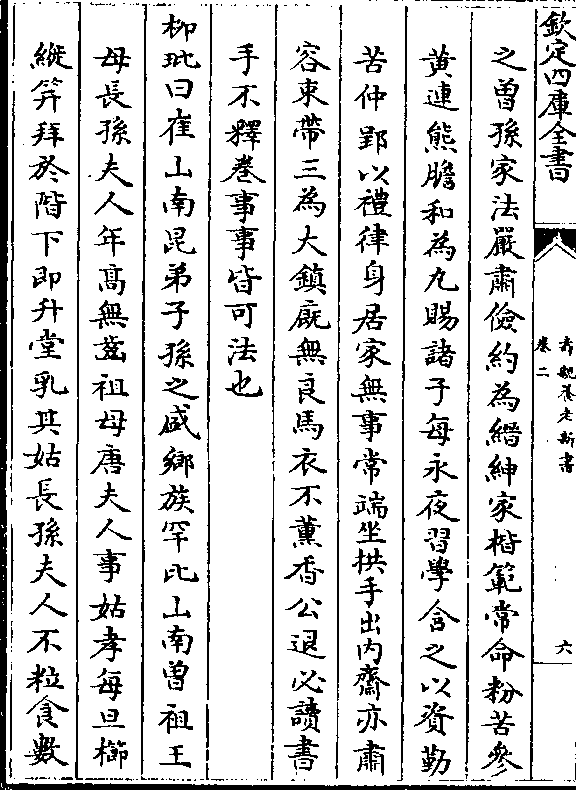 欽定四庫全書
壽親養老新書
卷二
六
之曾孫家法嚴肅儉約為縉紳家楷範常命粉苦參
黃連熊膽和為丸賜諸子每永夜習學含之以資勤
苦仲郢以禮律身居家無事常端坐拱手出内齋亦肅
容束帶三為大鎮廐無良馬衣不薰香公退必讀書
手不釋卷事事皆可法也
柳玭曰崔山南昆弟子孫之盛鄉族罕比山南曾祖王
母長孫夫人年髙無齒祖母唐夫人事姑孝每旦櫛
縰笄拜於階下即升堂乳其姑長孫夫人不粒食數